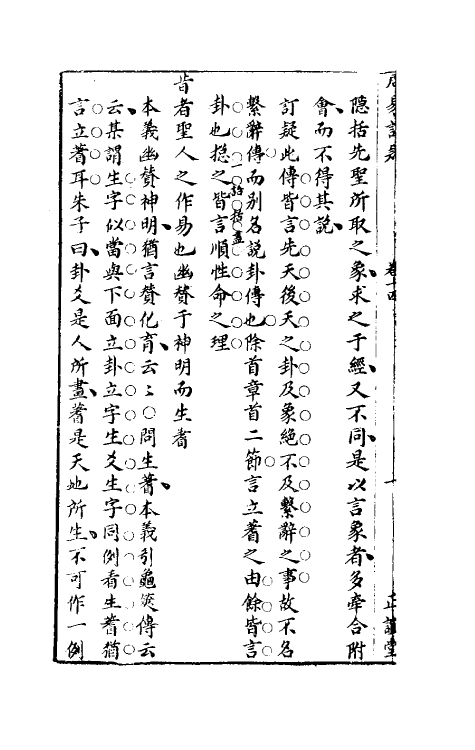 周易訂疑
卷十四
十
正誼堂
隱括先聖所取之象求之于經又不同是以言象者多牽合附
會而不得其說
訂疑此傳皆言先天後天之卦及象絕不及繫辭之事故不名
繫辭傳而别名說卦傳也除首章首二節言立蓍之由餘皆言
卦也總之皆言順性命之理
一語括盡
昔者聖人之作易也幽贊于神明而生蓍
本義幽贊神明猶言贊化育云〻○問生蓍本義引龜筴傳云
云某謂生字似當與下面立卦立字生爻生字同例看生蓍猶
言立蓍耳朱子曰卦爻是人所畫蓍是天地所生不可作一例